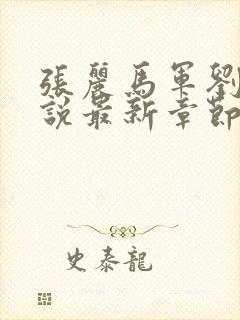 張麗馬軍劉
説最新章節
史泰龍